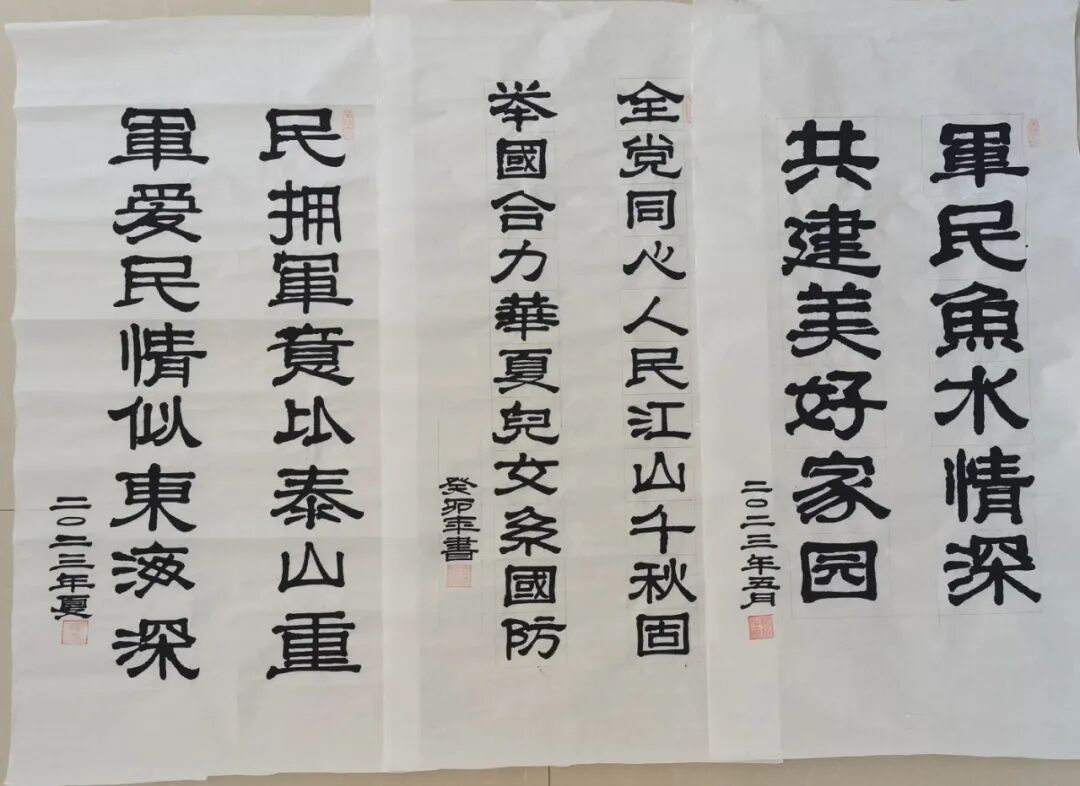 軍民魚水情深
共建美好家园
二〇二三年五月
全党同心人民江山千秋固
举國合力華夏兒女系國防
癸卯年書
民拥軍意比泰山重
軍爱民情似東海深
二〇二三年夏